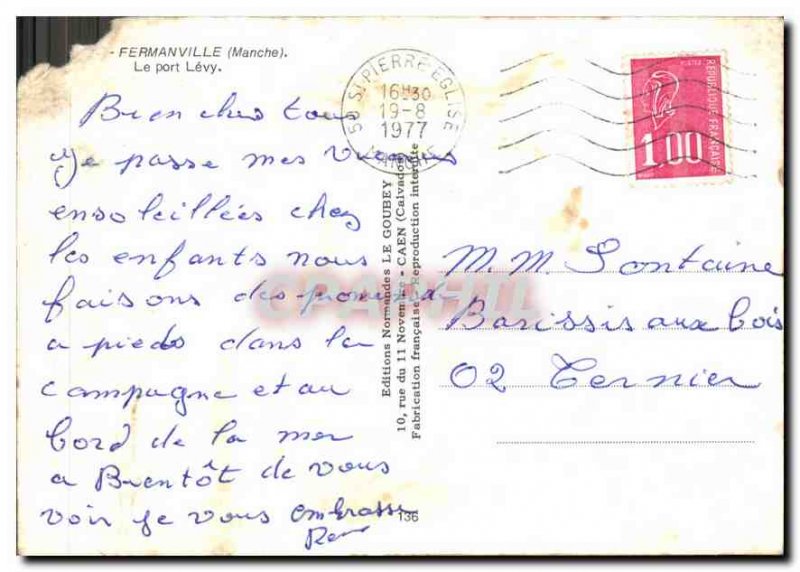 - FERMANVILLE (Manche).
Le port Lévy.
Bien chers tous
Je passe mes vacances
ensoleillées chez
les enfants nous
faisons des promenades
a pieds dans la
campagne et au
bord de la mer
a Bientôt de vous
voir je vous embrasse
50 ST PIERRE EGLISE
16H30
19-8
1977
MANCHE
REPUBLIQUE FRANÇAISE
1.00
Editions Normandes LE GOUBEY
10, rue du 11 Novembre - CAEN (Calvados)
Fabrication française - Reproduction interdite
136
M. M. Fontaine
Barissis aux bois
02 Ternier